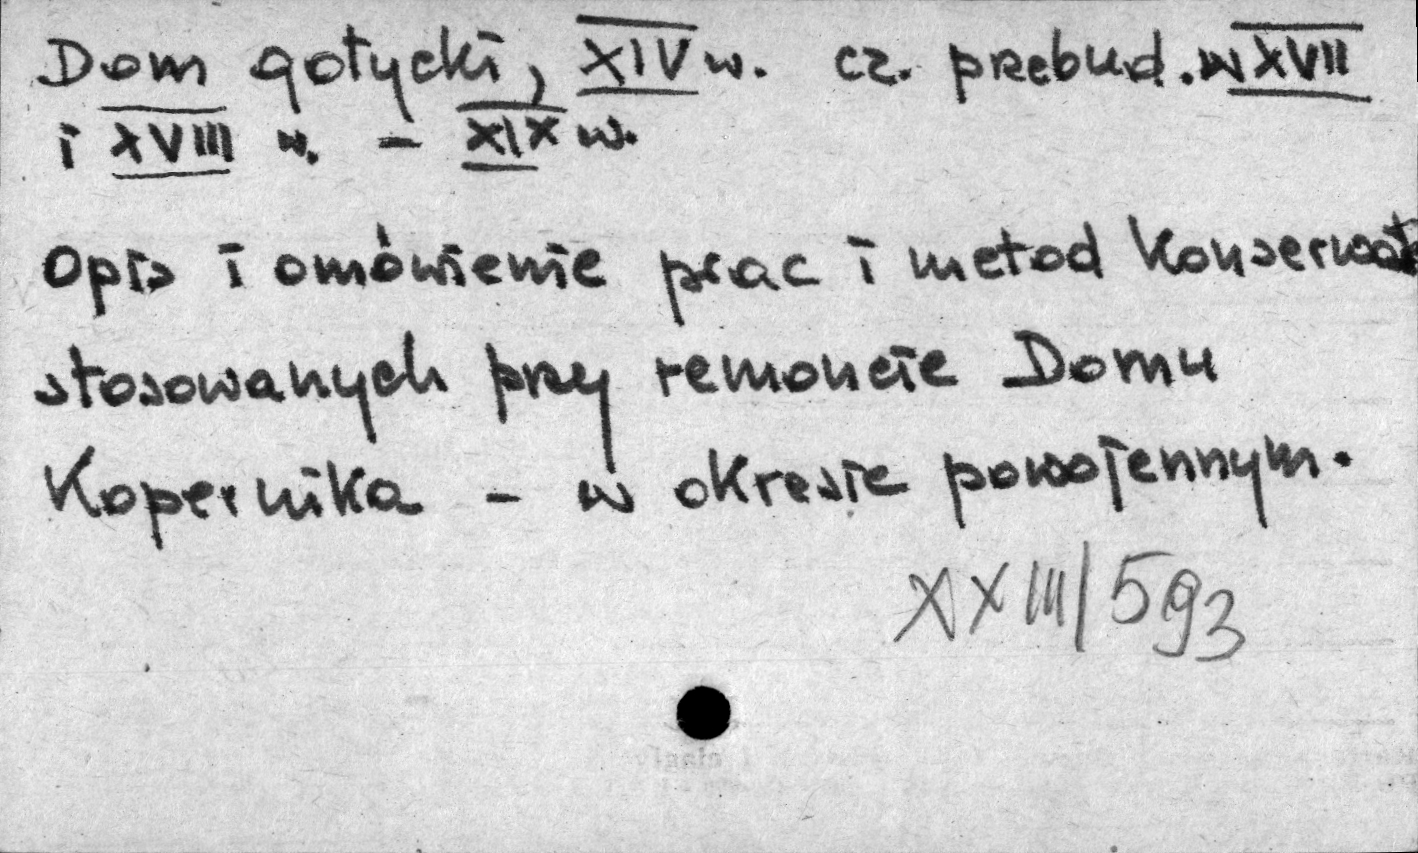 Dom gotycki, XIV w. cz. przebud. w XVII
i XVIII w. - XIX w.
Opis i omówienie prac i metod konserwat
stosowanych przy remoncie Domu
Kopernika - w okresie powojennym.
XXIII/593